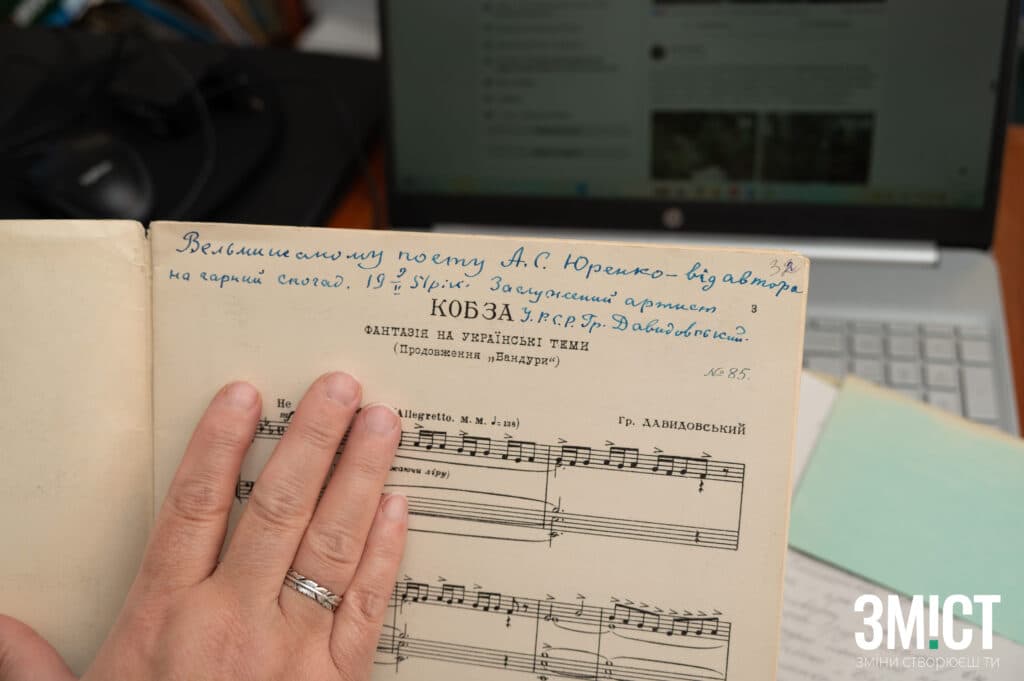 Вельмишаному поету А.С. Юренко – від автора
на гарний спогад. 19 9/II 51 рік. Заслужений артист
У.Р.С.Р. Гр. Давидовський.
3
КОБЗА
ФАНТАЗІЯ НА УКРАЇНСЬКІ ТЕМИ
(Продовження „Бандури“)
№ 85.
Не
Allegretto. М. М. ♩=138)
Гр. ДАВИДОВСЬКИЙ
ліру)
ЗМІСТ
ЗМІНИ СТВОРЮЄШ ТИ